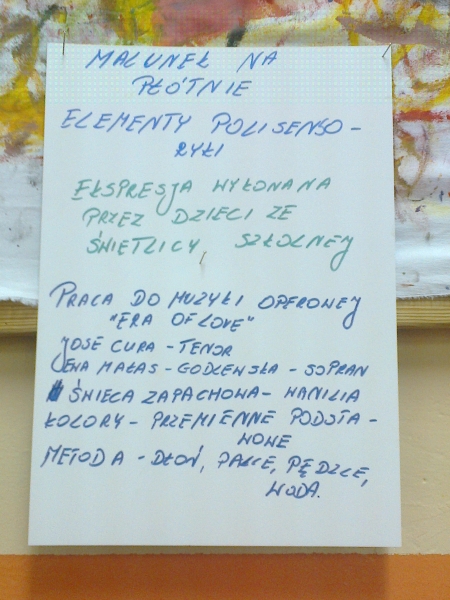 MALUNEK NA
PŁÓTNIE
ELEMENTY POLISENSO -
RYKI
EKSPRESJA WYKONANA
PRZEZ DZIECI ZE
ŚWIETLICY SZKOLNEJ
PRACA DO MUZYKI OPEROWEJ
"ERA OF LOVE"
JOSE CURA - TENOR
EWA MAŁAS - GODLEWSKA - SOPRAN
ŚWIECA ZAPACHOWA - WANILIA
KOLORY - PRZEMIENNE PODSTA -
WOWE
METODA - DŁOŃ, PALCE, PĘDZLE,
WODA.